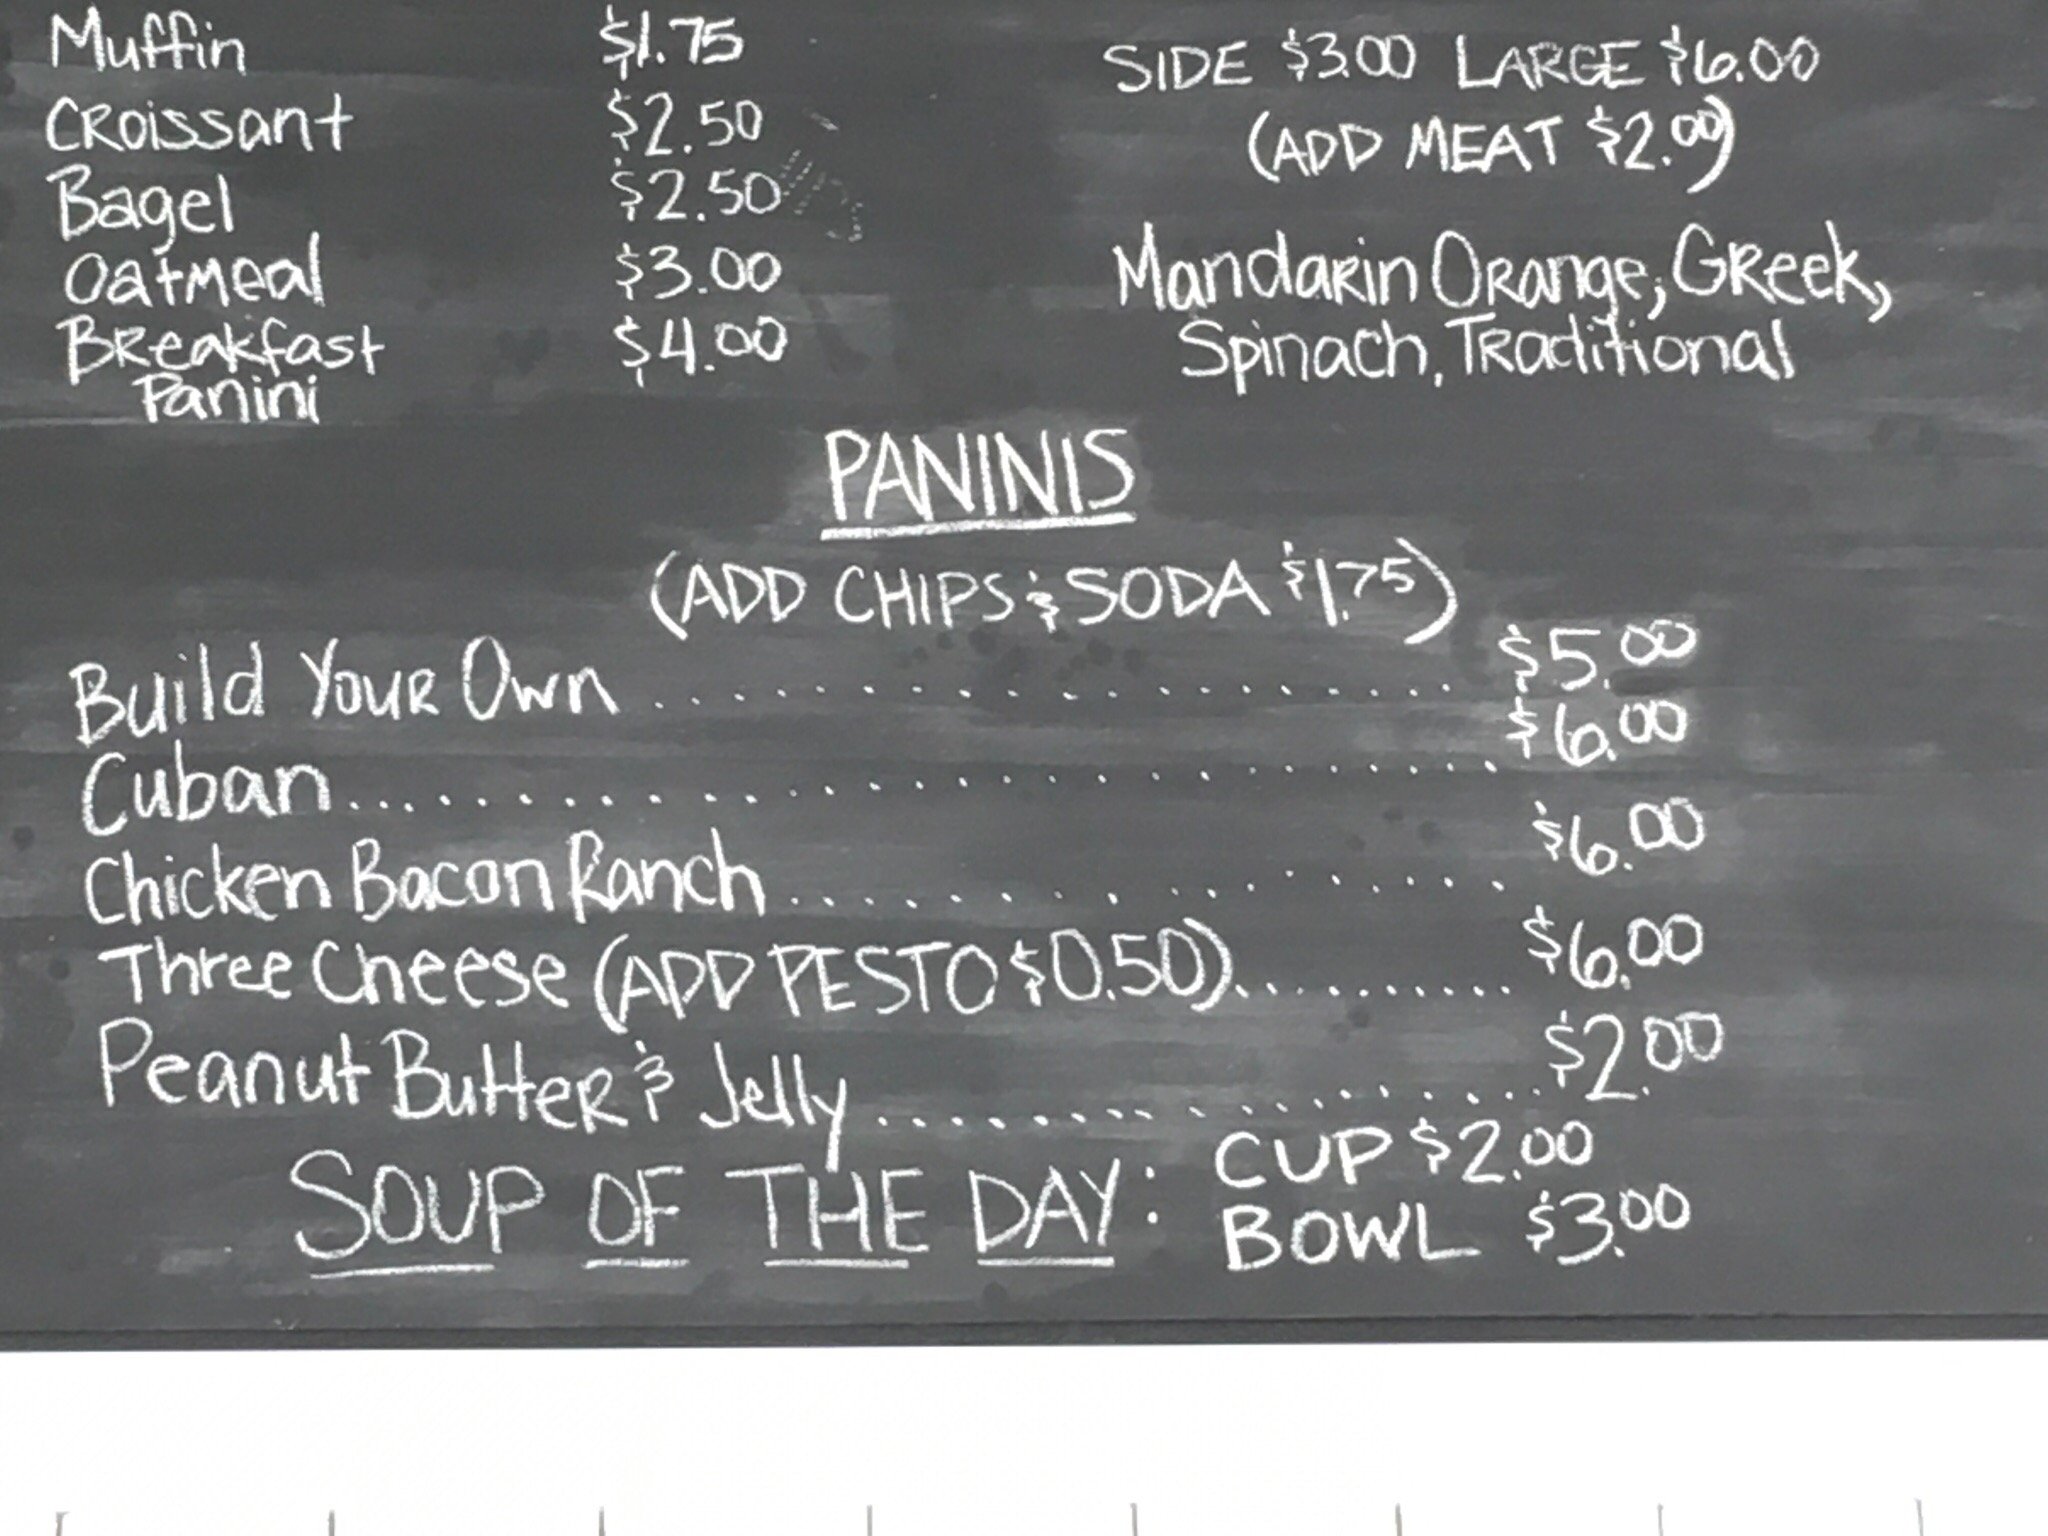 Muffin $1.75
Croissant $2.50
Bagel $2.50
Oatmeal $3.00
Breakfast $4.00
Panini
SIDE $3.00 LARGE $6.00
(ADD MEAT $2.00)
Mandarin Orange, Greek,
Spinach, Traditional
PANINIS
(ADD CHIPS & SODA $1.75)
Build Your Own .................... $5.00
Cuban .................... $6.00
Chicken Bacon Ranch .................... $6.00
Three Cheese (ADD PESTO $0.50) .......... $6.00
Peanut Butter & Jelly .................... $2.00
SOUP OF THE DAY: CUP $2.00
BOWL $3.00